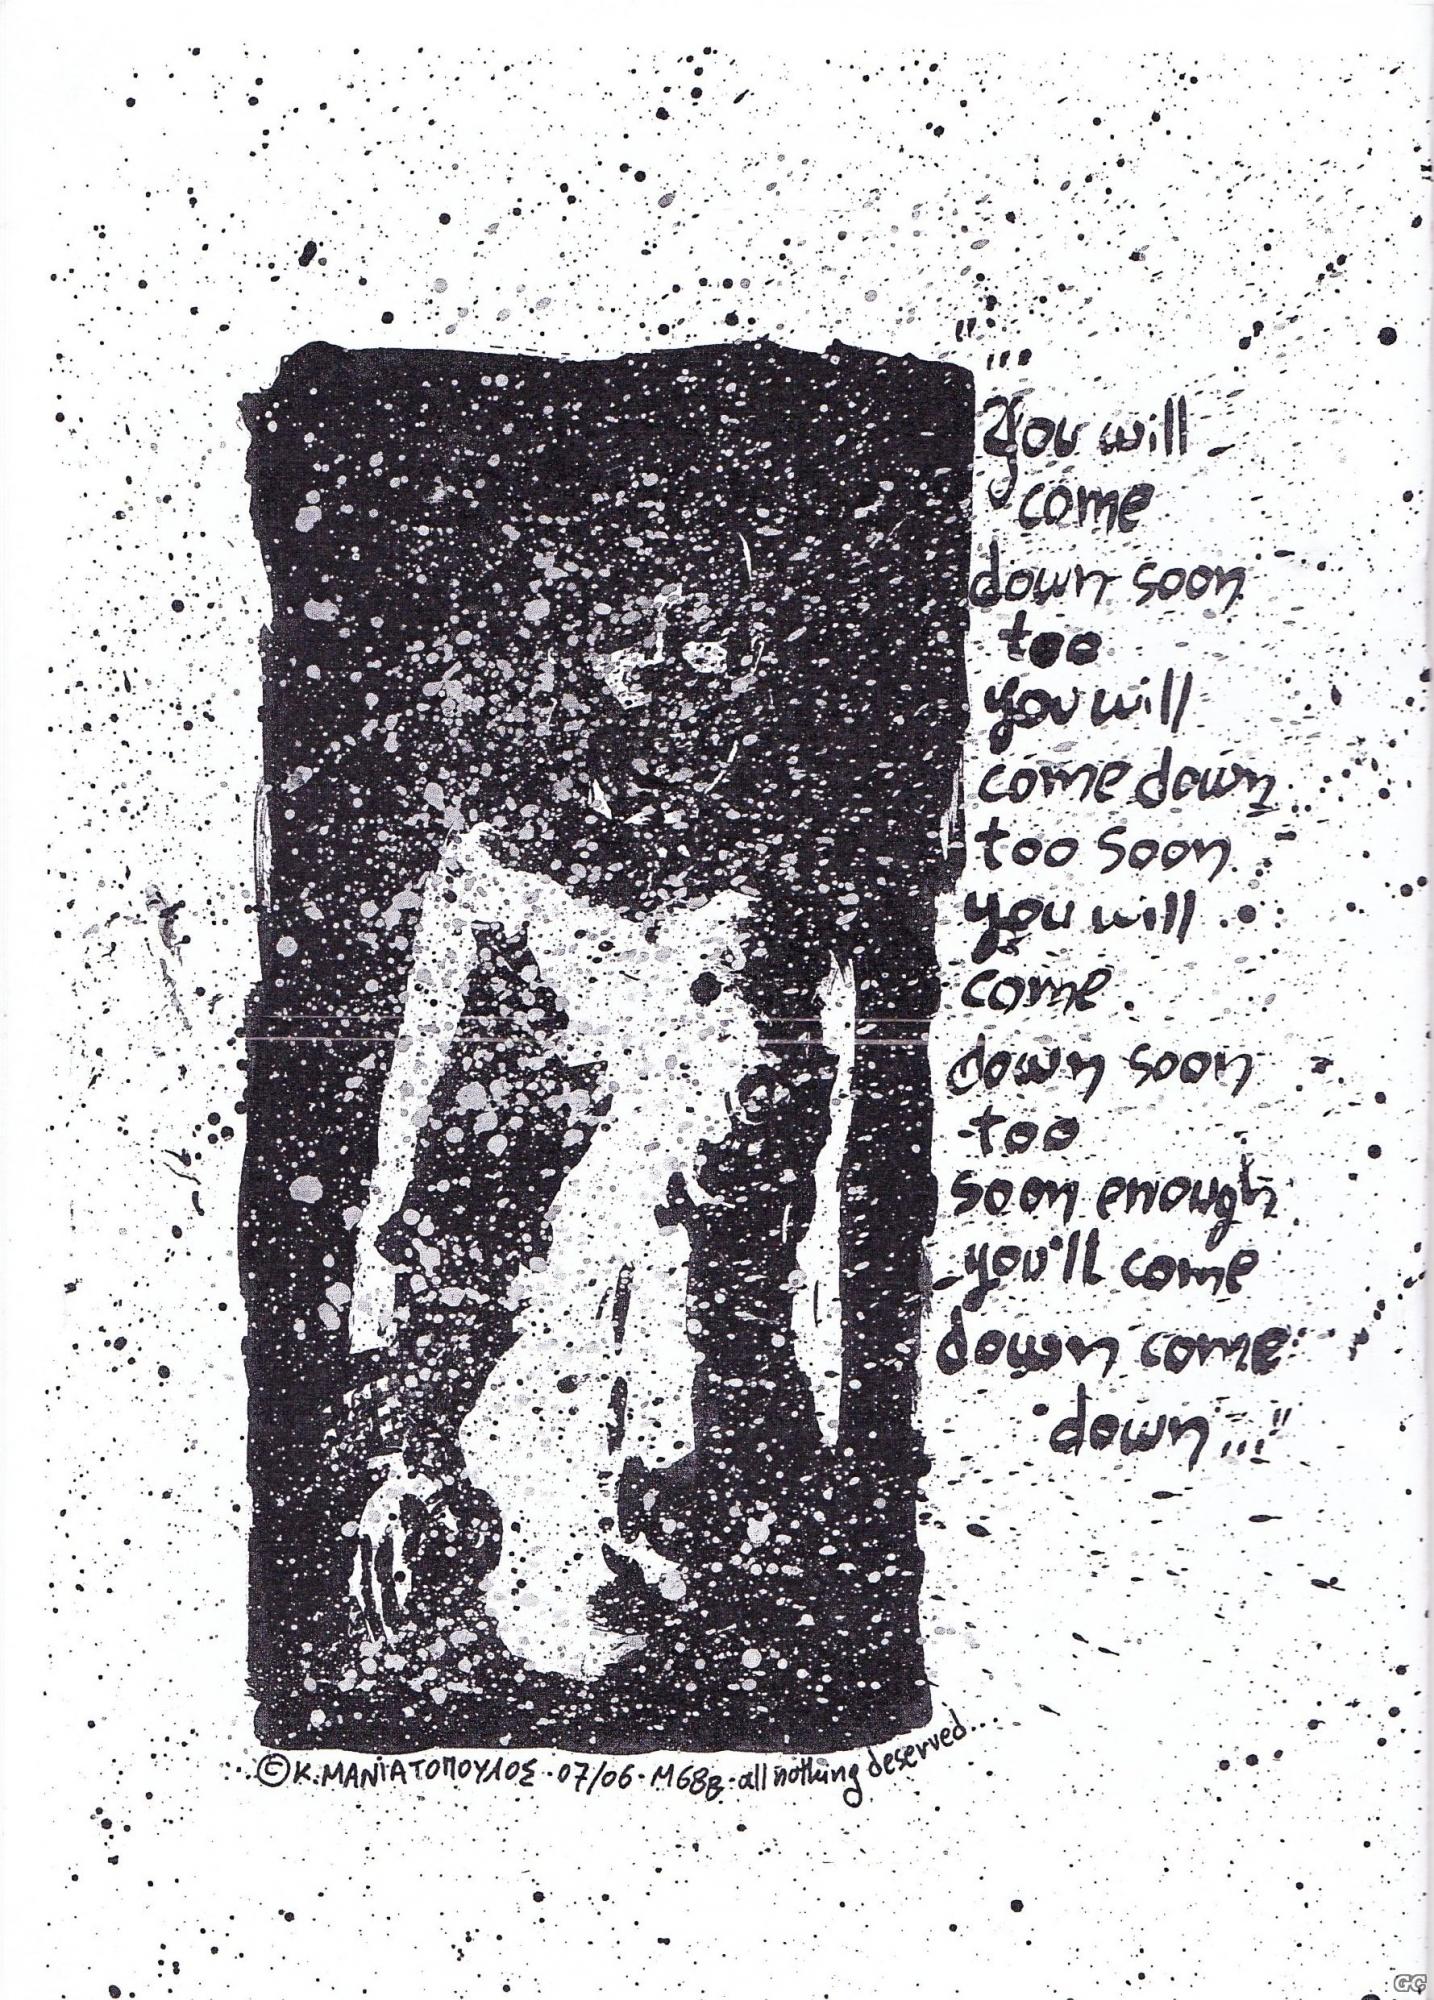 "
...
You will
come
down soon
too
you will
come down
too soon
you will
come
down soon
too
soon enough
you'll come
down come
down..."
© Κ. ΜΑΝΙΑΤΟΠΟΥΛΟΣ · 07/06 · M68B · all nothing deserved...
GC